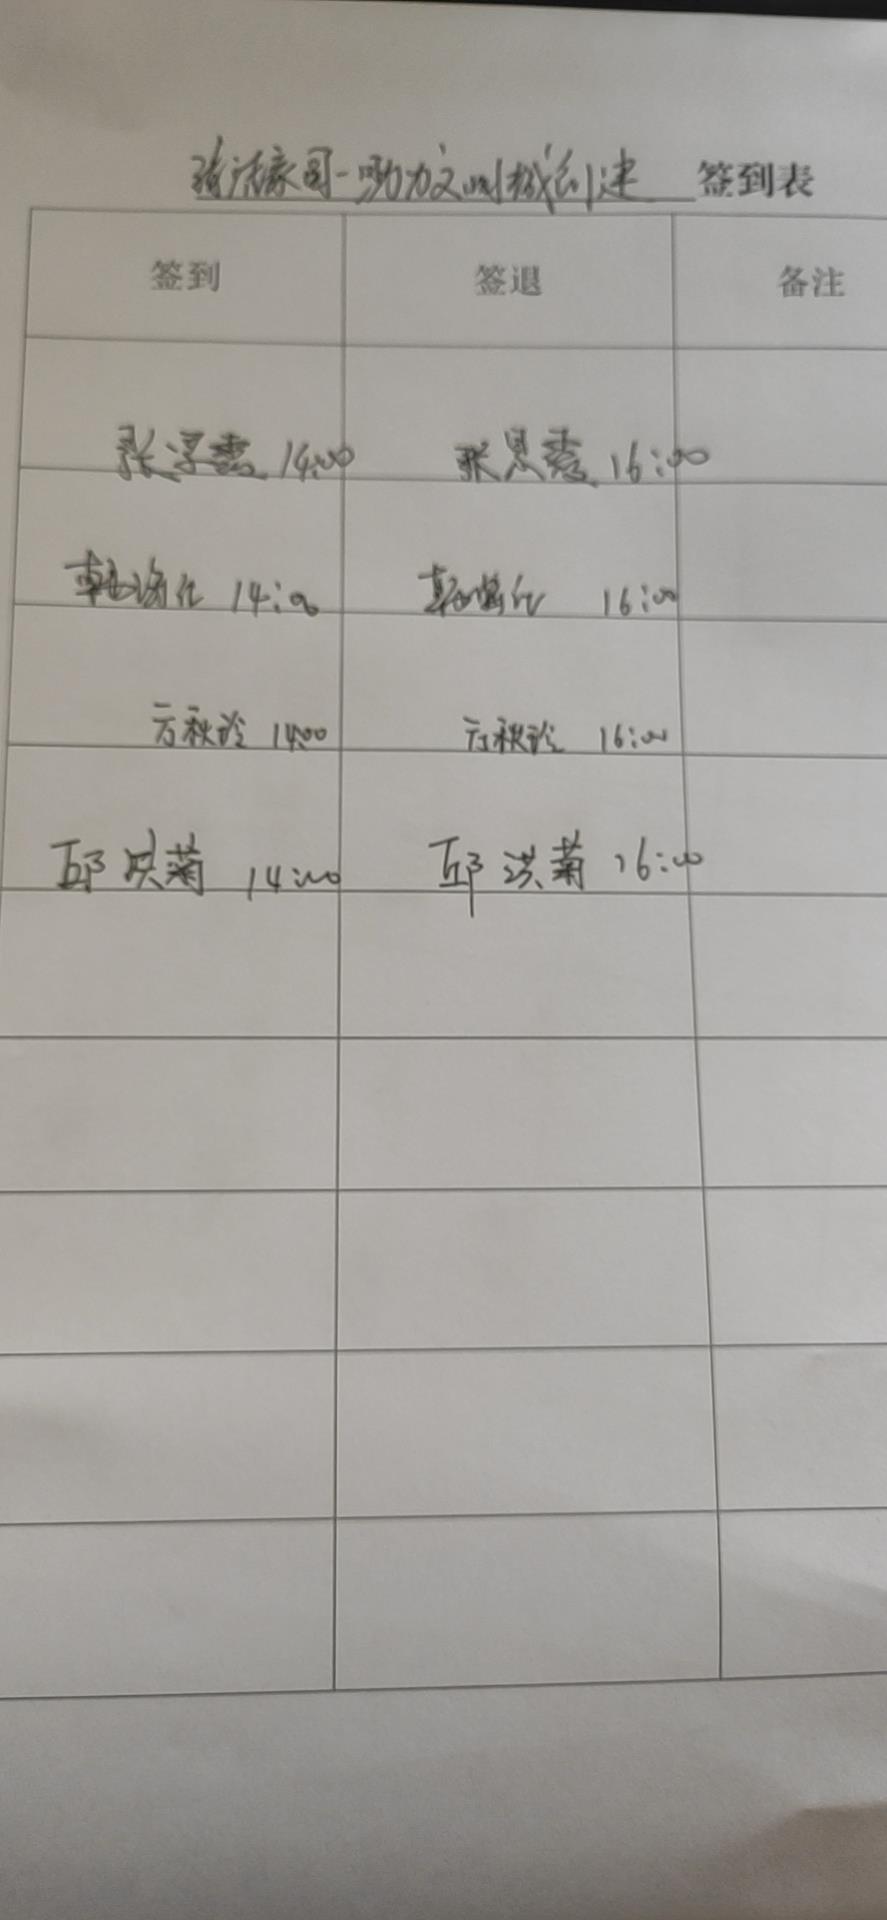 清洁家园-助力文明城创建 签到表
签到 签退 备注
张 14:00 张 16:00
14:00 16:00
方秋玲 14:00 方秋玲 16:00
邱洪菊 14:00 邱洪菊 16:00